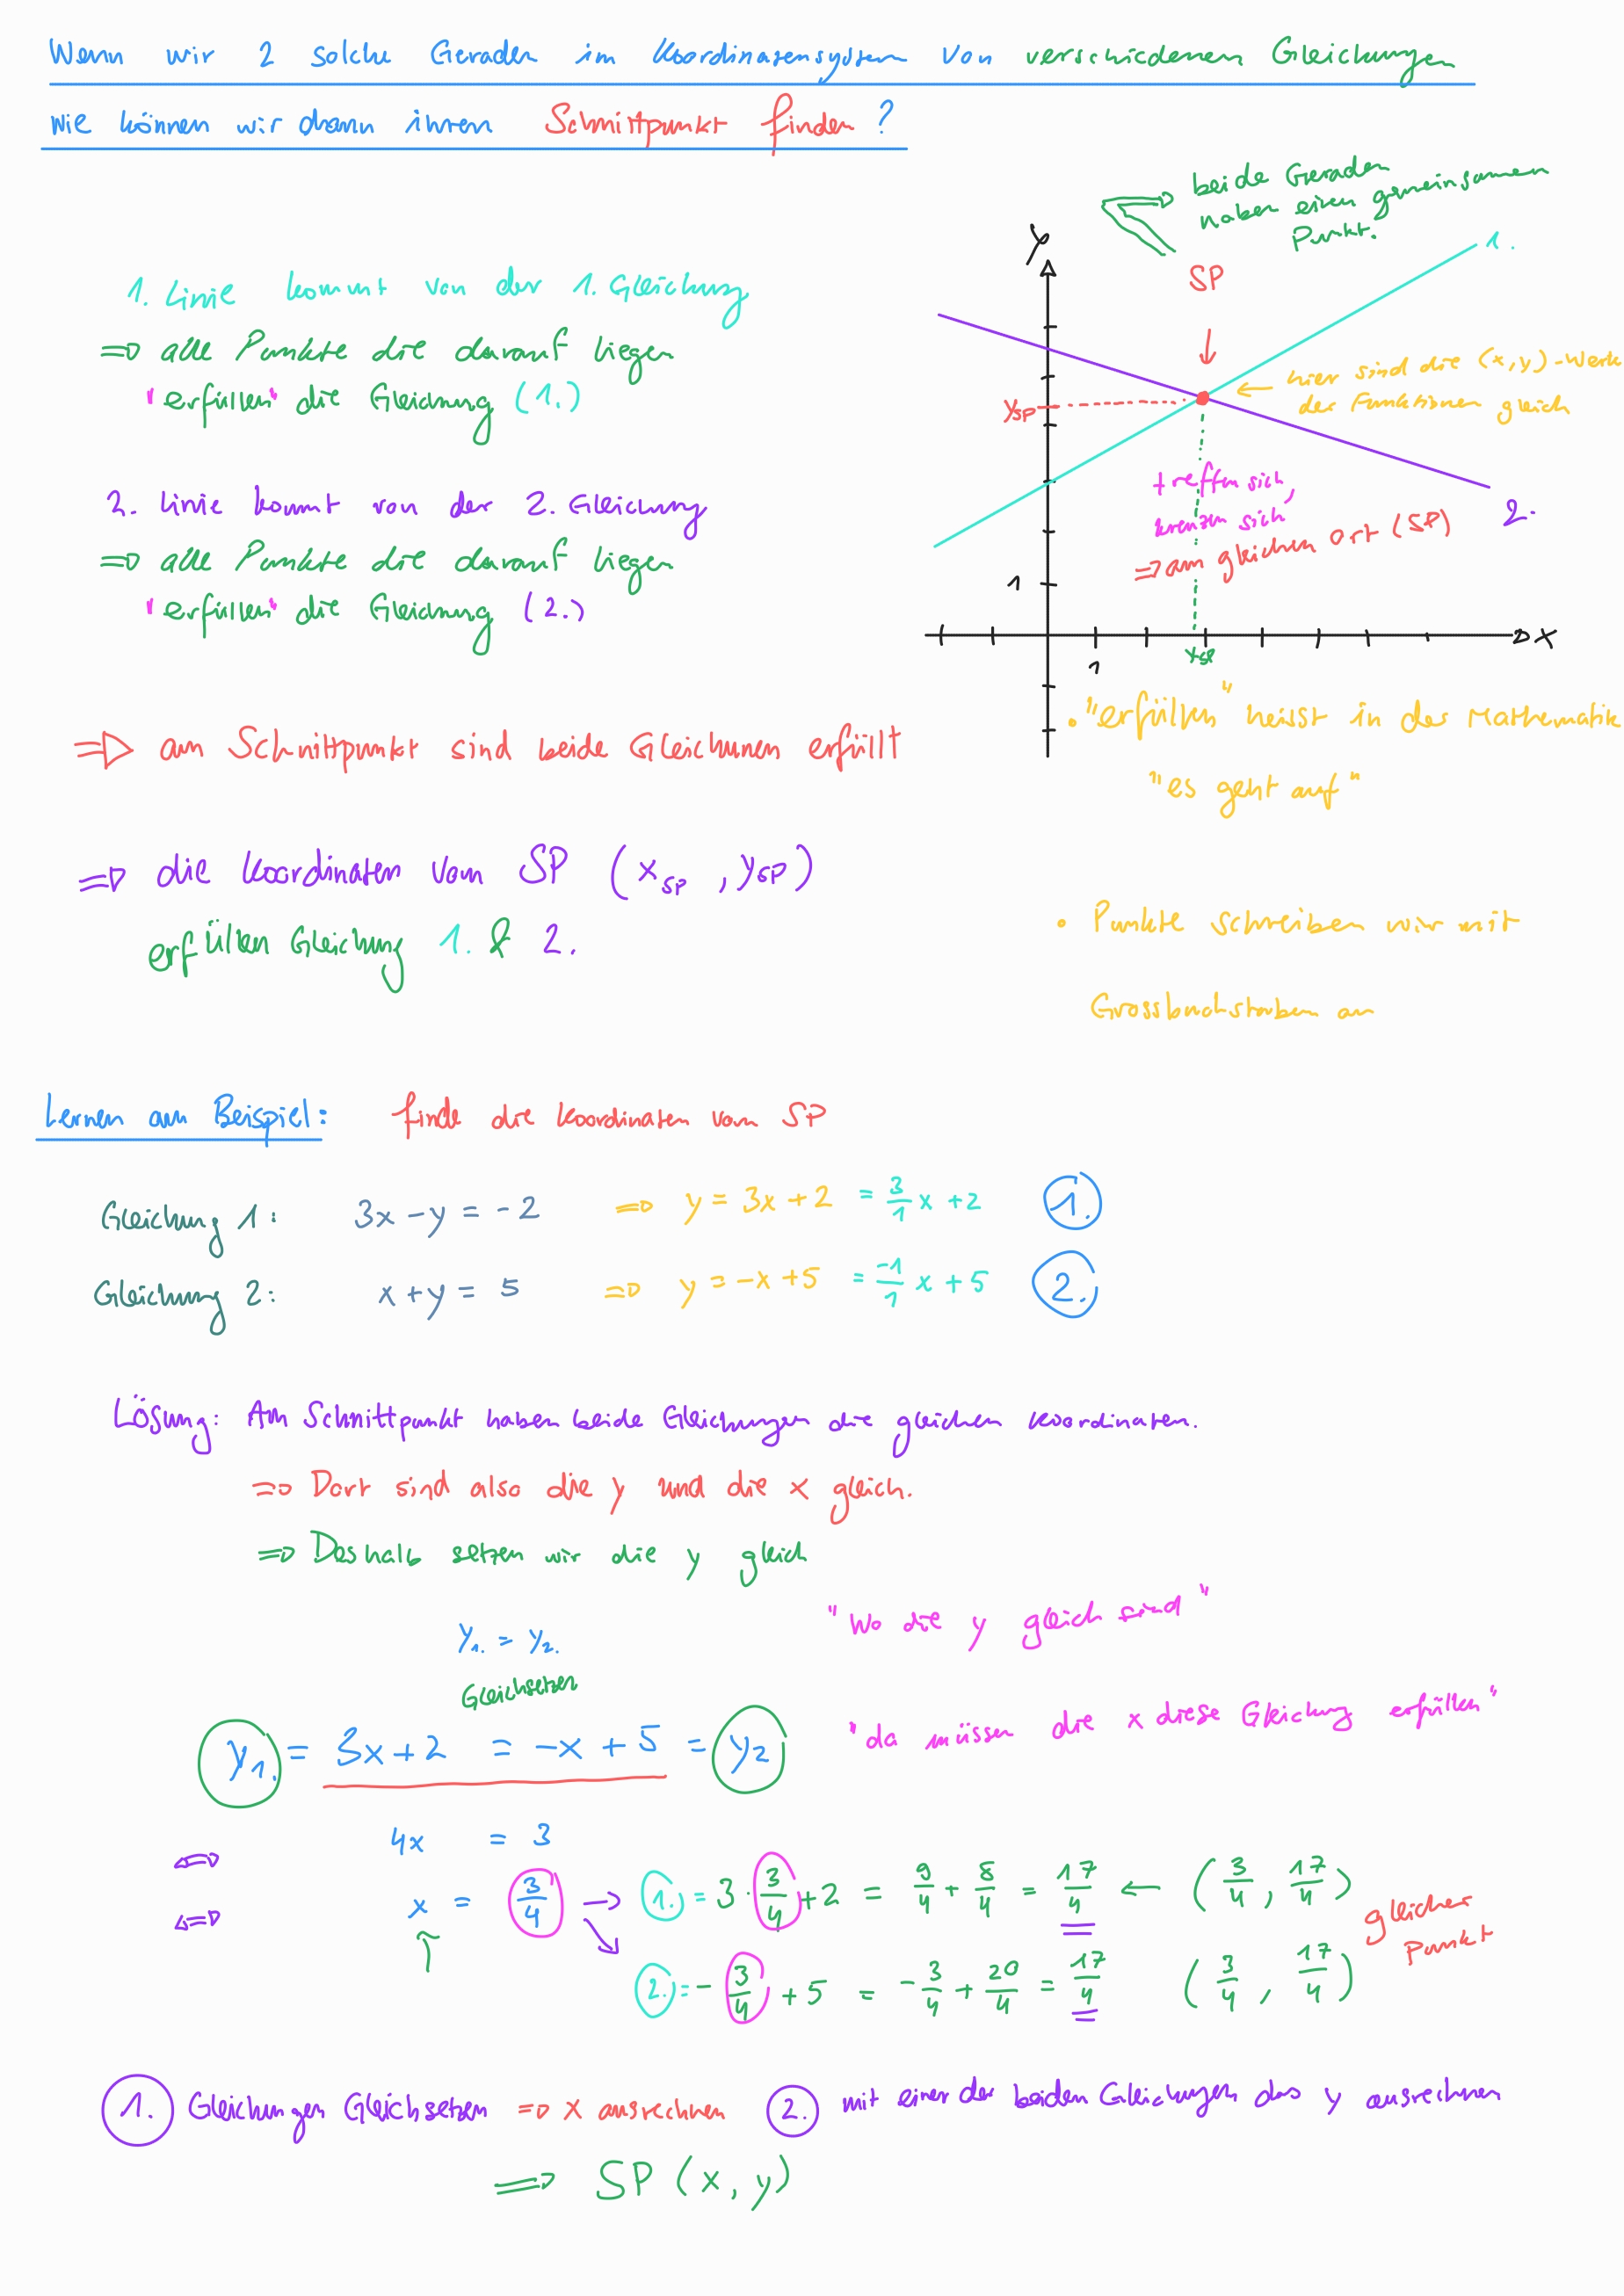 Wenn wir 2 solche Geraden im Koordinatensystem von verschiedenen Gleichungen
wie können wir dann ihren Schnittpunkt finden?
beide Geraden
haben einen gemeinsamen
Punkt.
y
1.
SP
1. Linie kommt von der 1. Gleichung
⇒ alle Punkte die darauf liegen
"erfüllen" die Gleichung (1.)
hier sind die (x,y)-Werte
der Funktionen gleich
ySP
treffen sich,
kreuzen sich
⇒ am gleichen Ort (SP)
2.
2. Linie kommt von der 2. Gleichung
⇒ alle Punkte die darauf liegen
"erfüllen" die Gleichung (2.)
1
x
1
xSP
• "erfüllen" heisst in der Mathematik
"es geht auf"
⇒ am Schnittpunkt sind beide Gleichunen erfüllt
⇒ die Koordinaten vom SP (xSP, ySP)
erfüllen Gleichung 1. & 2.
• Punkte schreiben wir mit
Grossbuchstaben an
Lernen am Beispiel: finde die Koordinaten vom SP
Gleichung 1: 3x - y = -2 ⇒ y = 3x + 2 = 3/1 x + 2 1.
Gleichung 2: x + y = 5 ⇒ y = -x + 5 = -1/1 x + 5 2.
Lösung: Am Schnittpunkt haben beide Gleichungen die gleichen Koordinaten.
⇒ Dort sind also die y und die x gleich.
⇒ Deshalb setzen wir die y gleich
"Wo die y gleich sind"
y1. = y2.
Gleichsetzen
"da müssen die x diese Gleichung erfüllen"
y1. = 3x + 2 = -x + 5 = y2
⇔ 4x = 3
⇔ x = 3/4 → 1. = 3 · 3/4 + 2 = 9/4 + 8/4 = 17/4 ← (3/4, 17/4)
gleicher
Punkt
2. = - 3/4 + 5 = - 3/4 + 20/4 = 17/4 (3/4, 17/4)
1. Gleichungen Gleichsetzen ⇒ x ausrechnen 2. mit einer der beiden Gleichungen das y ausrechnen
⇒ SP (x, y)